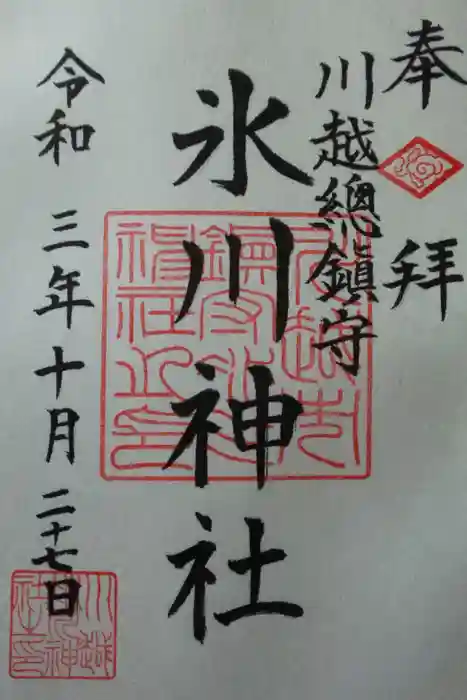 奉拝
川越總鎮守
氷川神社
令和三年十月二十七日